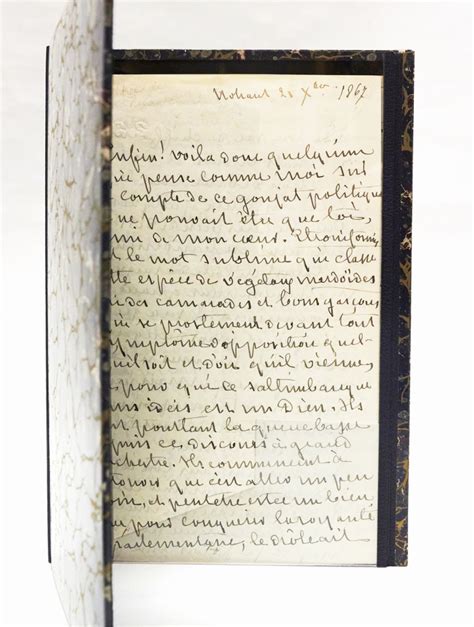 Nohant 21 Xbre 1867
nfin! voilà donc quelqu'un
ui pense comme moi sur
compte de ce goujat politique
ne pouvait être que toi,
mi de mon cœur. Etroniformes
t le mot sublime qui classe
tte espèce de vegetaux merdoïdes
i des camarades et bons garçons
ui se prosternent devant tout
ymptôme d'opposition quel
uil soit et d'où qu'il vienne,
pour qui ce saltimbanque
ns idées est un Dieu. Ils
t pourtant la queue basse
puis ce discours à grand
chestre. Ils commencent à
rouver que c'est aller un peu
oin, et peutetre est ce un bien
ue pour conquerir la royauté
parlementaire, le drôle ait